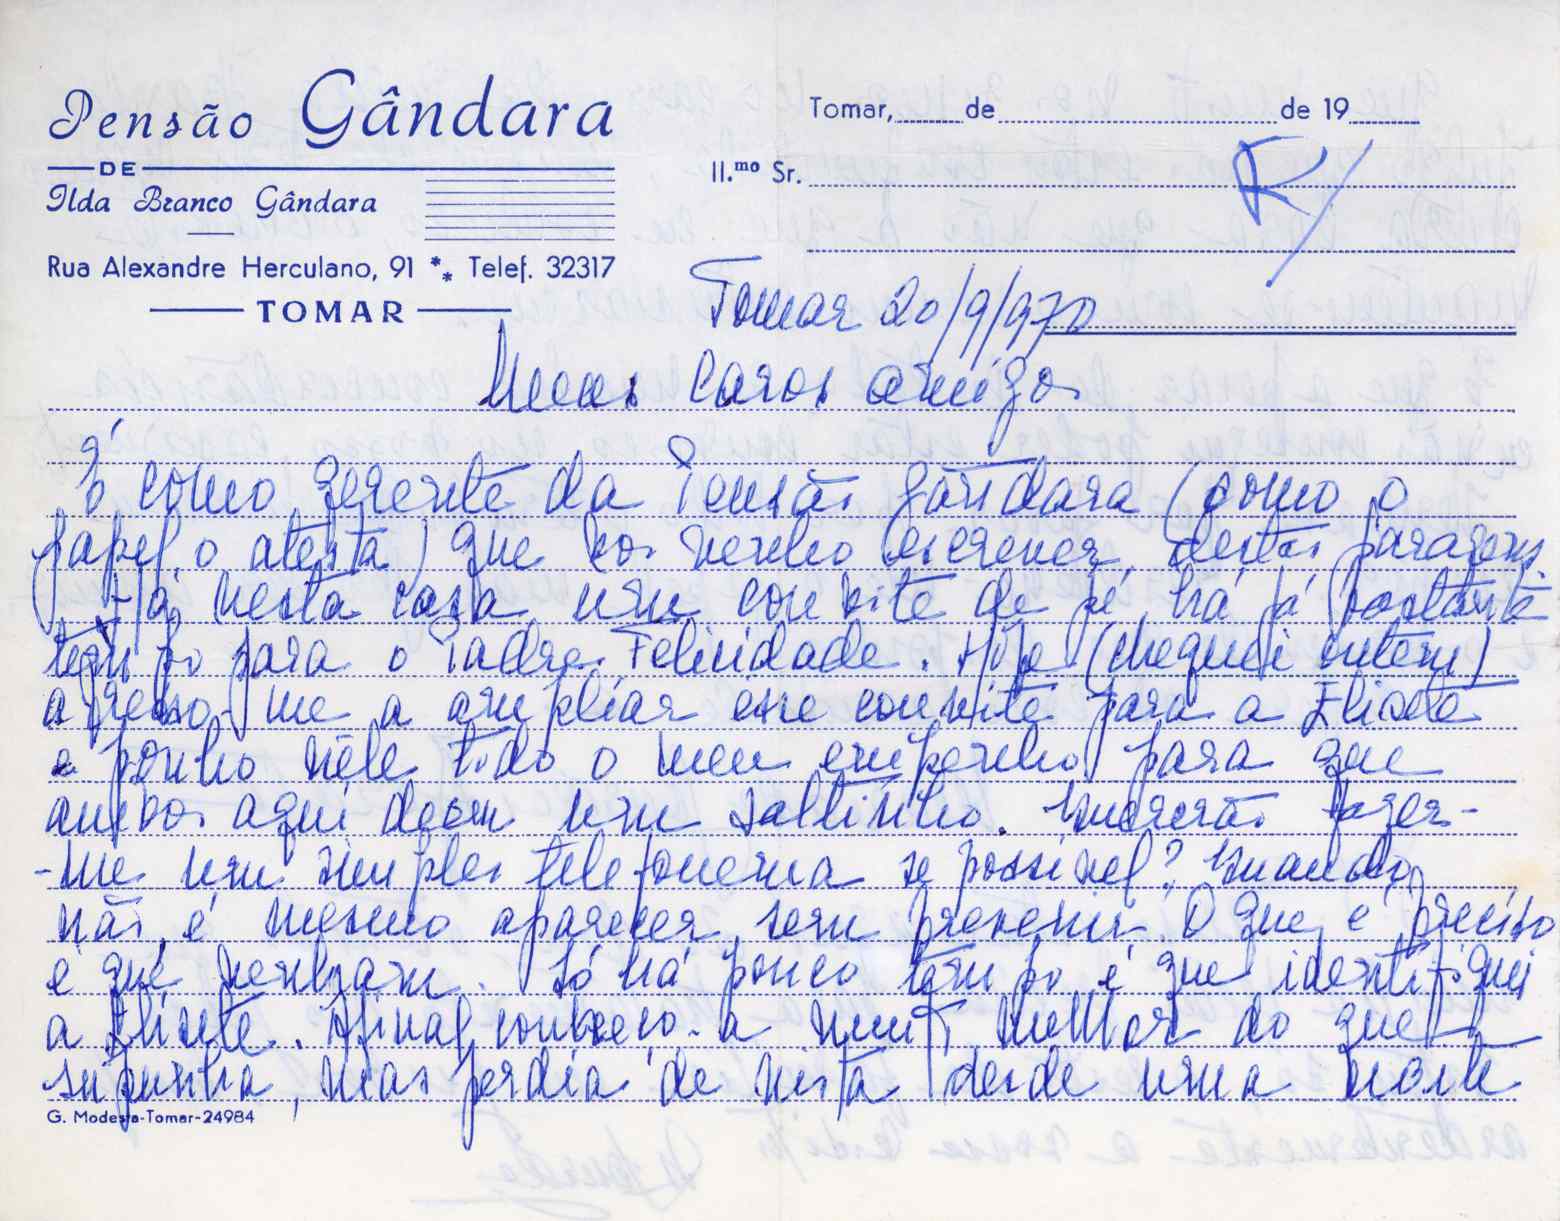 Pensão Gândara
DE
Ilda Branco Gândara
Rua Alexandre Herculano, 91 *** Telef. 32317
TOMAR
Tomar, de de 19
Il.mo Sr.
R/
Tomar 20/9/970
Meus Caros amigos
É como gerente da Pensão Gândara (como o
papel o atesta) que vos venho escrever destas paragens
Há nesta casa um convite de pé há já bastante
tempo para o Padre Felicidade. Hoje (cheguei ontem)
apresso-me a ampliar esse convite para a Elisete
e ponho nêle todo o meu empenho para que
ambos aqui deem um saltinho. Quererão fazer-
-me um simples telefonema se possivel? Quando
não, é mesmo aparecer sem prevenir. O que é preciso
é que venham. Só há pouco tempo é que identifiquei
a Elisete. Afinal conheço-a muit melhor do que
supunha, mas perdia de vista desde uma noite
G. Modesta-Tomar-24984